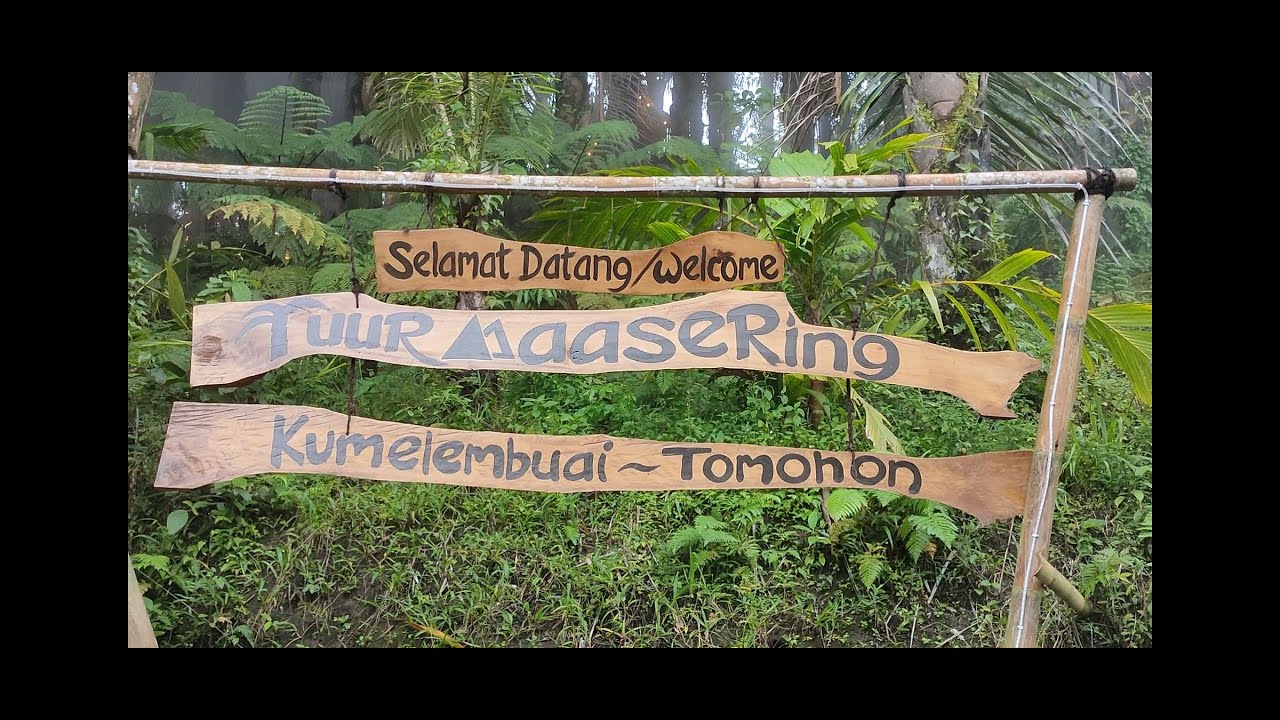 Selamat Datang/Welcome
Tuur Maasering
Kumelembuai ~ Tomohon